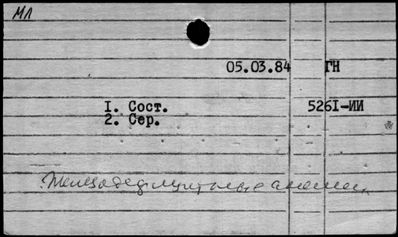 МЛ
05.03.84 ГН
1. Сост. 5261-ИИ
2. Сер.
Железодефицитные анемии